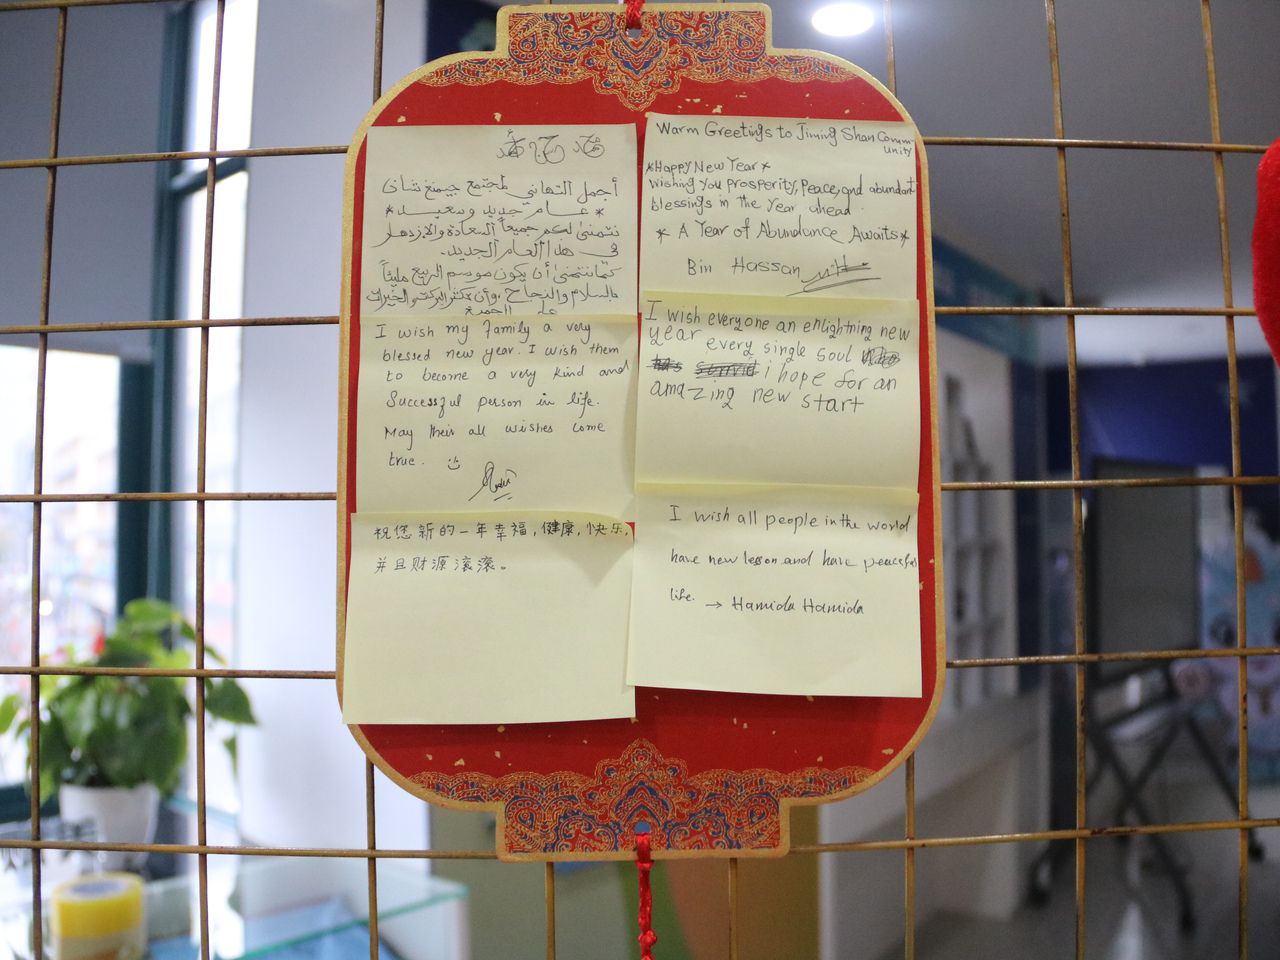 أجمل التهاني لمجتمع جيمنغ شان
* عام جديد وسعيد *
نتمنى لكم جميعاً السعادة والازدهار
في هذا العام الجديد.
كما نتمنى أن يكون موسم الربيع مليئاً
بالسلام والنجاح وأن تكثر البركة والخيرات
على الجميع
I wish my family a very
blessed new year. I wish them
to become a very kind and
Successful person in life.
May their all wishes come
true. ☺
祝您新的一年幸福,健康,快乐,
并且财源滚滚。
Warm Greetings to Jiming Shan Comm-
unity
*Happy New Year*
Wishing You prosperity, Peace, and abundant
blessings in the Year ahead.
* A Year of Abundance Awaits*
Bin Hassan
I wish everyone an enlightning new
year every single soul
i hope for an
amazing new start
I wish all people in the world
have new lesson and have peaceful
life. → Hamida Hamida